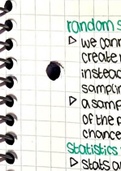 random s
▷ we cann
create r
instead
samplin
▷ a samp
of the p
chance
statistics
▷ stats a